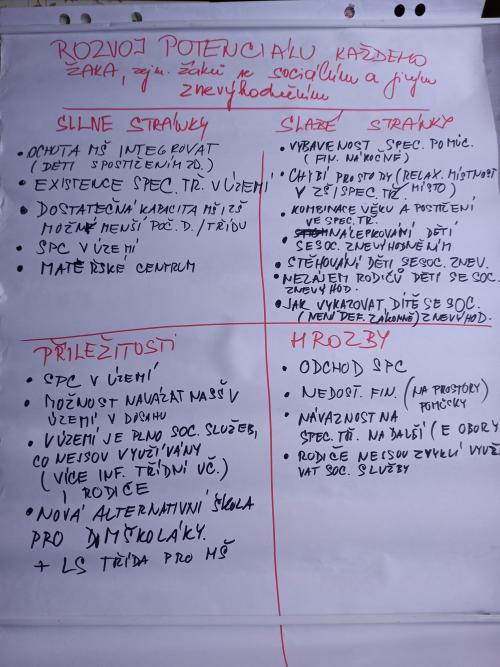 ROZVOJ POTENCIÁLU KAŽDÉHO
ŽÁKA, zejm. žáků se sociálním a jiným
znevýhodněním
SILNÉ STRÁNKY
• OCHOTA MŠ INTEGROVAT
(DĚTI S POSTIŽENÍM ZD.)
• EXISTENCE SPEC. TŘ. V ÚZEMÍ
• DOSTATEČNÁ KAPACITA MŠ, ZŠ
MOŽNÉ MENŠÍ POČ. D. / TŘÍDU
• SPC V ÚZEMÍ
• MATEŘSKÉ CENTRUM
SLABÉ STRÁNKY
• VYBAVENOST SPEC. POMŮC.
(FIN. NÁROČNÉ)
• CHYBÍ PROSTORY (RELAX. MÍSTNOST
V ZŠ / SPEC. TŘ. MÍSTO)
• KOMBINACE VĚKU A POSTIŽENÍ
VE SPEC. TŘ.
• NÁLEPKOVÁNÍ DĚTÍ
SE SOC. ZNEVÝHODNĚNÍM
• STĚHOVÁNÍ DĚTÍ SE SOC. ZNEV.
• NEZÁJEM RODIČŮ DĚTÍ SE SOC.
ZNEVÝHOD.
• JAK VYKAZOVAT DÍTĚ SE SOC.
(NENÍ DEF. ZÁKONNĚ) ZNEVÝHOD.
PŘÍLEŽITOSTI
• SPC V ÚZEMÍ
• MOŽNOST NAVÁZAT NA SŠ V
ÚZEMÍ V DOSAHU
• V ÚZEMÍ JE PLNO SOC. SLUŽEB,
CO NEJSOU VYUŽÍVÁNY
(VÍCE INF. TŘÍDNÍ UČ.)
I RODIČE
• NOVÁ ALTERNATIVNÍ ŠKOLA
PRO D, MŠKOLÁKY.
+ LS TŘÍDA PRO MŠ
HROZBY
• ODCHOD SPC
• NEDOST. FIN. (NA PROSTORY
POMŮCKY
• NÁVAZNOST NA
SPEC. TŘ. NA DALŠÍ (E OBORY
• RODIČE NEJSOU ZVYKLÍ VYUŽÍ
VAT SOC. SLUŽBY